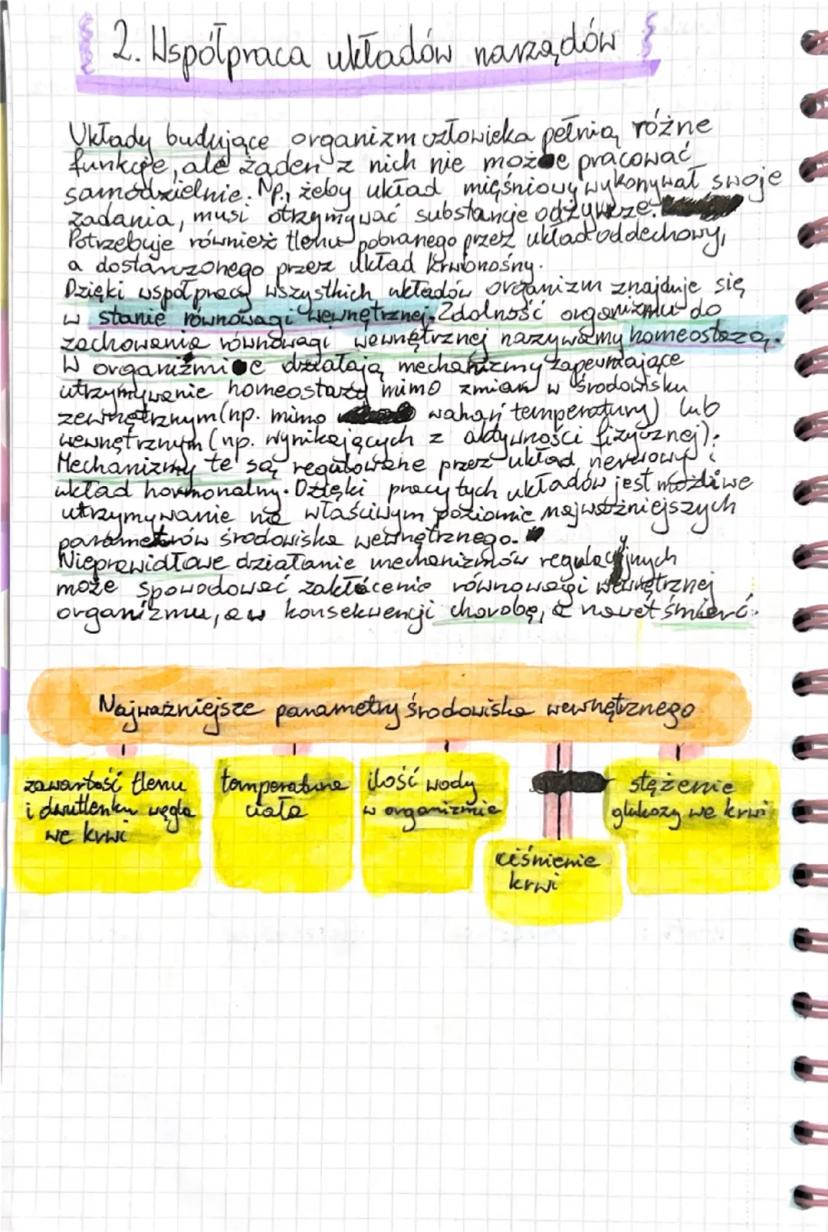 2. Współpraca układów narządów
Układy budujące organizm człowieka pełnią różne
funkcje, ale żaden z nich nie może pracować
samodzielnie. Np., żeby układ mięśniowy wykonywał swoje
zadania, musi otrzymywać substancje odżywcze.
Potrzebuje również tlenu pobranego przez układ oddechowy,
a dostarczonego przez układ krwionośny.
Dzięki współpracy wszystkich układów organizm znajduje się
w stanie równowagi wewnętrznej. Zdolność organizmu do
zachowania równowagi wewnętrznej nazywamy homeostazą.
W organizmie działają mechanizmy zapewniające
utrzymywanie homeostazy mimo zmian w środowisku
zewnętrznym (np. mimo wahań temperatury) lub
wewnętrznym (np. wynikających z aktywności fizycznej).
Mechanizmy te są regulowane przez układ nerwowy i
układ hormonalny. Dzięki pracy tych układów jest możliwe
utrzymywanie na właściwym poziomie najważniejszych
parametrów środowiska wewnętrznego.
Nieprawidłowe działanie mechanizmów regulacyjnych
może spowodować zakłócenie równowagi wewnętrznej
organizmu, a w konsekwencji chorobę, a nawet śmierć.
Najważniejsze parametry środowiska wewnętrznego
zawartość tlenu
i dwutlenku węgla
we krwi
temperatura
ciała
ilość wody
w organizmie
ciśnienie
krwi
stężenie
glukozy we krwi